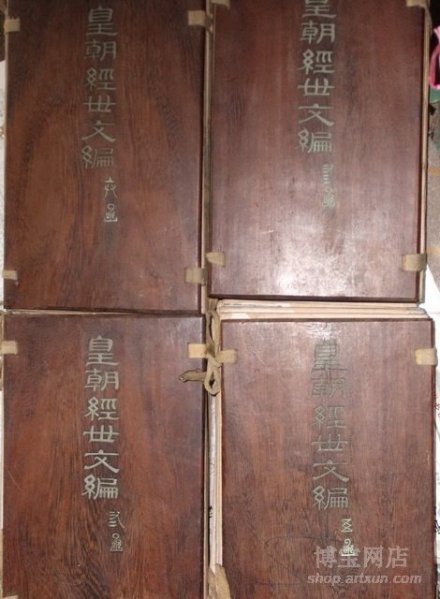 皇朝經世文編 六函
皇朝經世文編 弎函
皇朝經世文編 弍函
皇朝經世文編 五函
博宝网店
shop.artxun.com